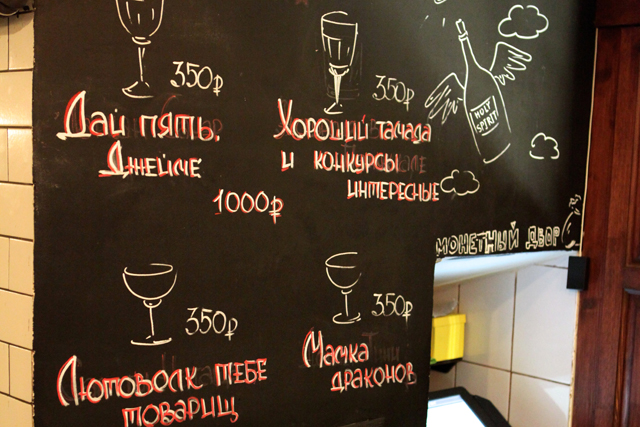 350₽
350₽
Дай пять,
Джейме
1000₽
Хороший тамада
и конкурсы
интересные
HOLY
SPIRIT
МОНЕТНЫЙ ДВОР
350₽
350₽
Лютоволк тебе
товарищ
Мамка
драконов